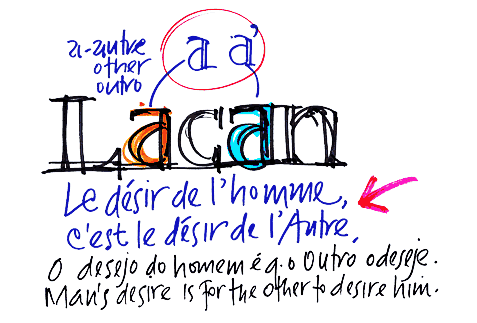 a-autre
other
outro
a a'
Lacan
Le désir de l'homme,
c'est le désir de l'Autre,
O desejo do homem é q. o Outro o deseje.
Man's desire is for the other to desire him.